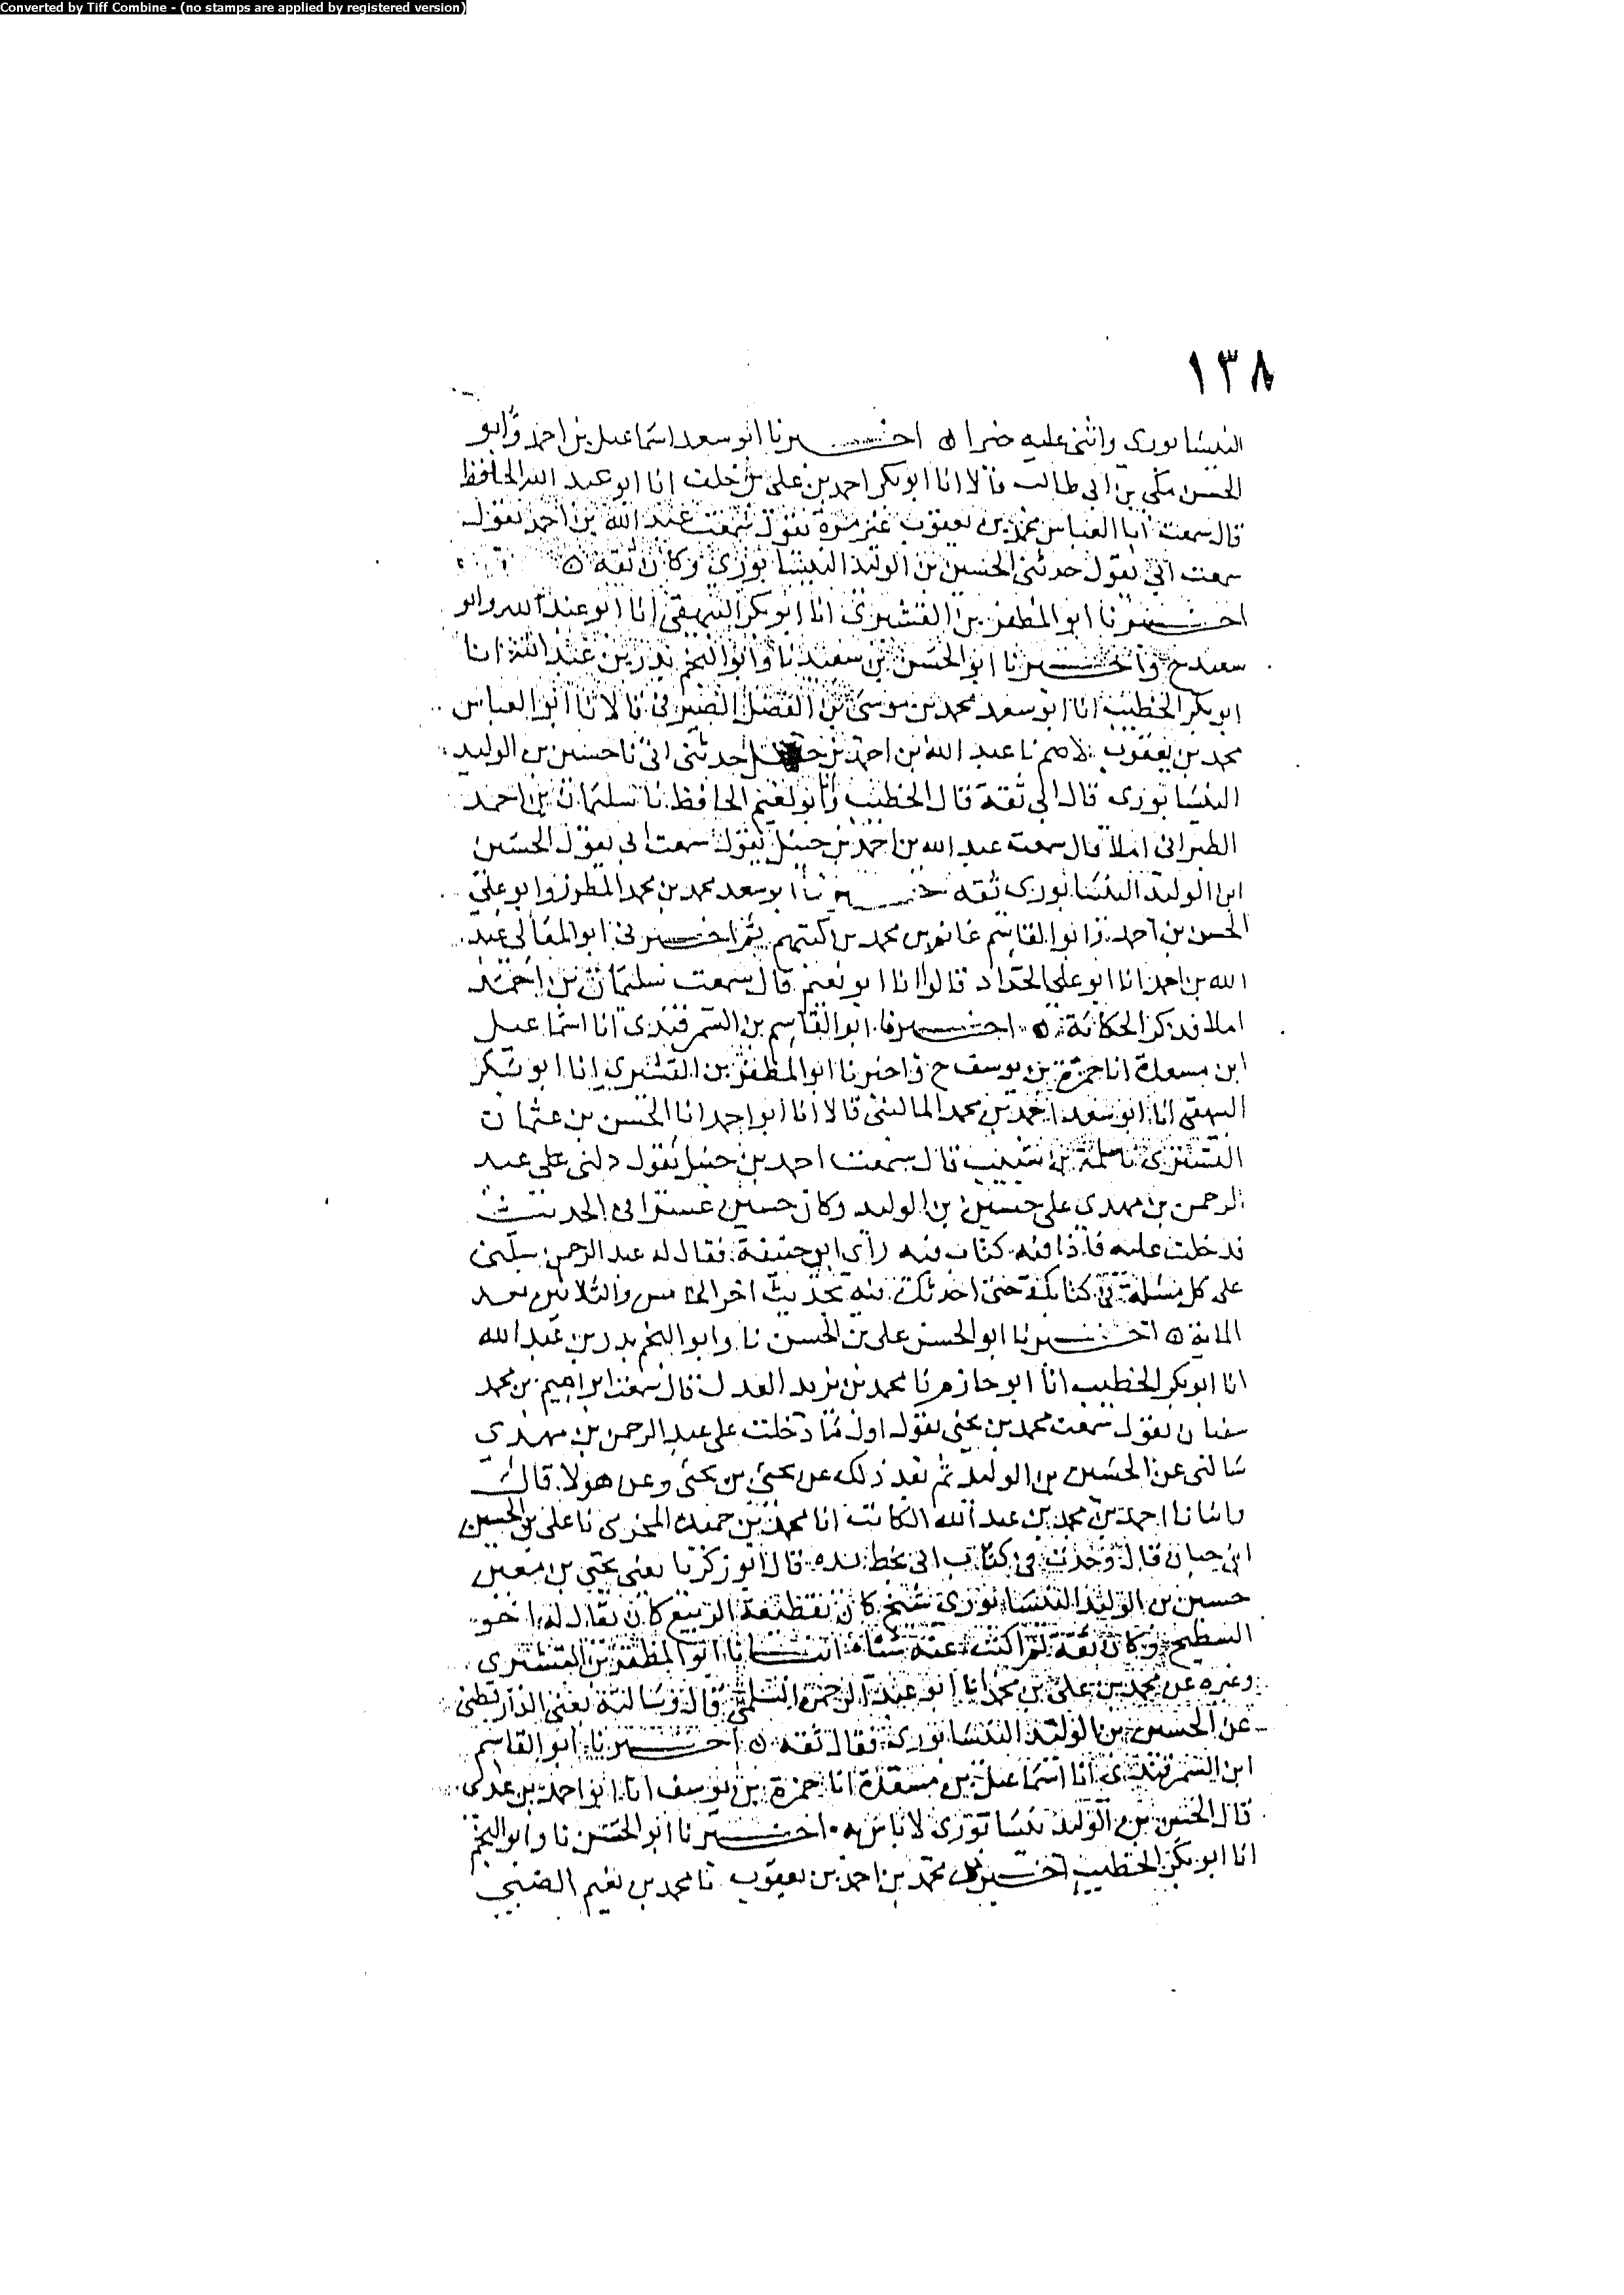 Converted by Tiff Combine - (no stamps are applied by registered version)
١٣٨
النيسابورى واثنى عليه خيرا ه اخبرنا ابو سعد اسماعيل بن احمد وابو
الحسن مكى بن ابى طالب قالا انا ابو بكر احمد بن على بن خلف انا ابو عبد الله الحافظ
قال سمعت ابا العباس محمد بن يعقوب غير مرة يقول سمعت عبد الله بن احمد يقول
سمعت ابى يقول حدثنى الحسين بن الوليد النيسابورى وكان ثقه ه
اخبرنا ابو المظفر بن القشيرى انا ابو بكر البيهقى انا ابو عبد الله وابو
سعيد ح واخبرنا ابو الحسن بن سعيد نا وابو النجم بدر بن عبد الله انا
ابو بكر الخطيب انا ابو سعد محمد بن موسى بن الفضل الصيرفى قالا نا ابو العباس
محمد بن يعقوب الاصم نا عبد الله بن احمد بن حنبل حدثنى ابى نا حسين بن الوليد
النيسابورى قال ابى ثقة قال الخطيب وانا ابو نعيم الحافظ نا سليمان بن احمد
الطبرانى املا قال سمعت عبد الله بن احمد بن حنبل يقول سمعت ابى يقول الحسين
ابن الوليد النيسابورى ثقه اخبرنا ابو سعد محمد بن محمد المطرز وابو على
الحسن بن احمد وابو القاسم غانم بن محمد بن كتبهم ثم اخبرنى ابو المعالى عبد
الله بن احمد انا ابو على الحداد قالوا انا ابو نعيم قال سمعت سليمان بن احمد
املا فذكر الحكاية ه اخبرنا ابو القاسم بن السمرقندى انا اسماعيل
ابن مسعدة انا حمزة بن يوسف ح واخبرنا ابو المظفر بن القشيرى انا ابو بكر
البيهقى انا ابو سعد احمد بن محمد المالينى قالا انا ابو احمد انا الحسن بن عثمان
التسترى نا سلمة بن شبيب قال سمعت احمد بن حنبل يقول دلنى على عبد
الرحمن بن مهدى على حسين بن الوليد وكان حسين عسرا فى الحديث
فدخلت عليه فاذا فيه كتاب فيه راى ابى حنيفة فقال له عبد الرحمن سلنى
على كل مسلة فى كتابك حتى احدثك فيه بحديث اخر الخامس والثلاثين بعد
الماية ه اخبرنا ابو الحسن على بن الحسن نا وابو النجم بدر بن عبد الله
انا ابو بكر الخطيب انا ابو حازم نا محمد بن يزيد العدل قال سمعت ابراهيم بن محمد
سفيان يقول سمعت محمد بن يحيى يقول اول ما دخلت على عبد الرحمن بن مهدى
سالنى عن الحسين بن الوليد ثم بعد ذلك عن يحيى بن يحيى وعن هولا قال
وانبانا احمد بن محمد بن عبد الله الكاتب انا محمد بن حميد المخرمى نا على بن الحسين
ابن حبان قال وجدت فى كتاب ابى بخط يده قال ابو زكريا يعنى يحيى بن معين
حسين بن الوليد النيسابورى شيخ كان بقطيعة الربيع كان يقال له اخو
السطيح وكان ثقة لم اكتب عنه شيئا ه انبانا ابو المظفر بن القشيرى
وغيره عن محمد بن على بن محمد انا ابو عبد الرحمن السلمى قال وسالته يعنى الدارقطنى
عن الحسين بن الوليد النيسابورى فقال ثقه ه اخبرنا ابو القاسم
ابن السمرقندى انا اسماعيل بن مسعدة انا حمزة بن يوسف انا ابو احمد بن عدى
قال الحسين بن الوليد نيسابورى لا باس به ه اخبرنا ابو الحسن نا وابو النجم
انا ابو بكر الخطيب اخبرنى محمد بن احمد بن يعقوب نا محمد بن نعيم الضبى